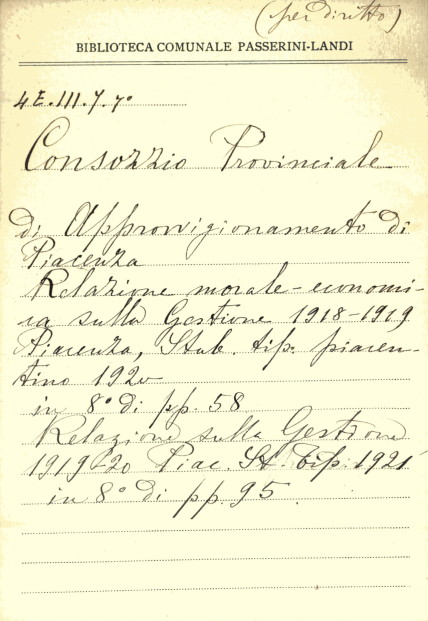 (per diritto)
BIBLIOTECA COMUNALE PASSERINI-LANDI
4E.III.7.7°
Consorzio Provinciale
di Approvvigionamento di
Piacenza
Relazione morale-economi-
ca sulla Gestione 1918-1919
Piacenza, Stab. tip. piacen-
tino 1920
in 8° di pp. 58
Relazione sulla Gestione
1919-20 Piac. St. tip. 1921
in 8° di pp. 95.